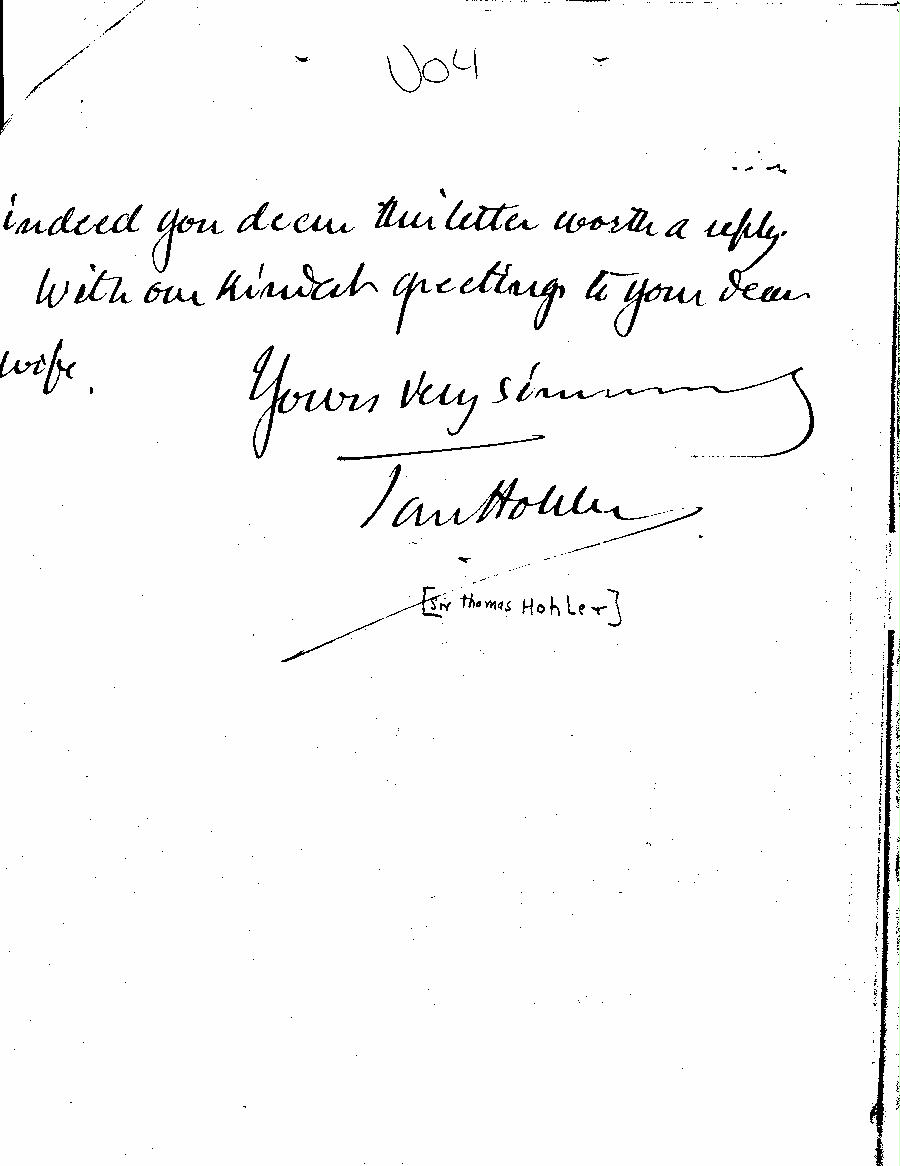 U04
indeed you deem this letter worth a reply.
With our kindest greetings to your dear
wife.
Yours very sincerely
Ian Hohler
[Sir Thomas Hohler]